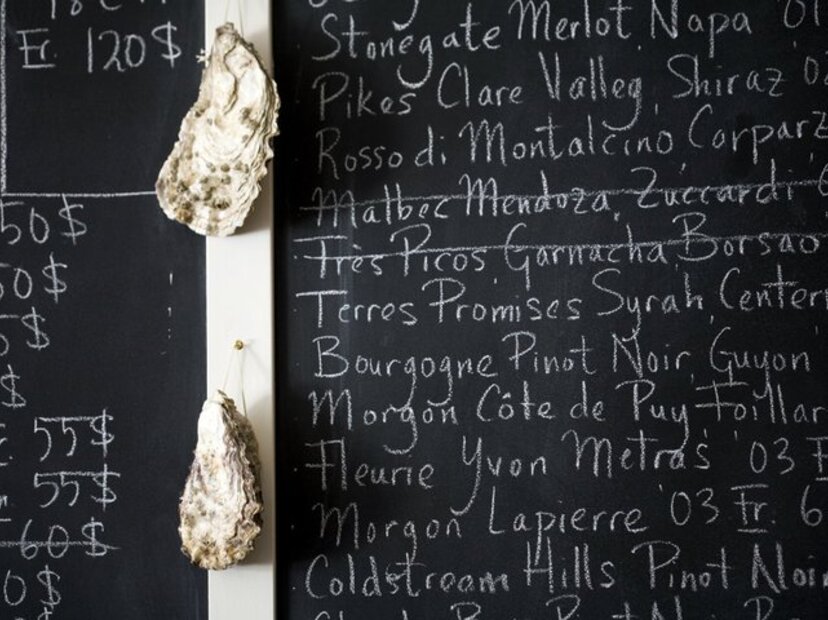 Fr. 120$
50$
50$
5$
$
55$
55$
60$
0$
$
Stonegate Merlot, Napa
Pikes Clare Valley, Shiraz
Rosso di Montalcino, Corparz
Malbec Mendoza, Zuccardi
Très Picos, Garnacha, Borsao
Terres Promises Syrah, Center
Bourgogne Pinot Noir, Guyon
Morgon Côte de Puy, Foillar
Fleurie Yvon Metras '03 Fr
Morgon Lapierre '03 Fr. 6
Coldstream Hills Pinot Noir